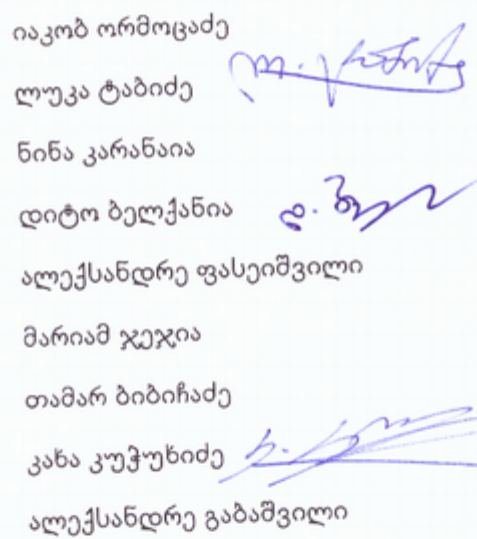 იაკობ ორმოცაძე
ლუკა ტაბიძე
ნინა კარანაია
დიტო ბელქანია
ალექსანდრე ფასეიშვილი
მარიამ ჯეჯია
თამარ ბიბიჩაძე
კახა კუჭუხიძე
ალექსანდრე გაბაშვილი